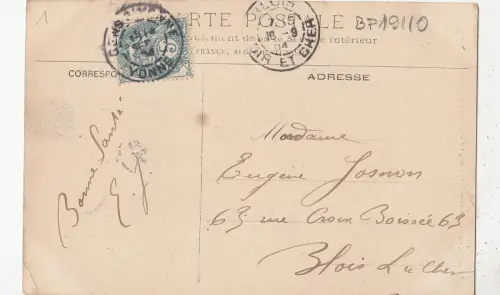 1
CARTE POSTALE
B719110
FRANCE, AL
intérieur
SENS YONNE
YONNE
BLOIS
16 - 9
04
LOIR ET CHER
CORRESPO
ADRESSE
Bonne Santé
E. J.
Madame
Eugène Josnon
63 rue Croix Boissée 63
Blois L. et Cher